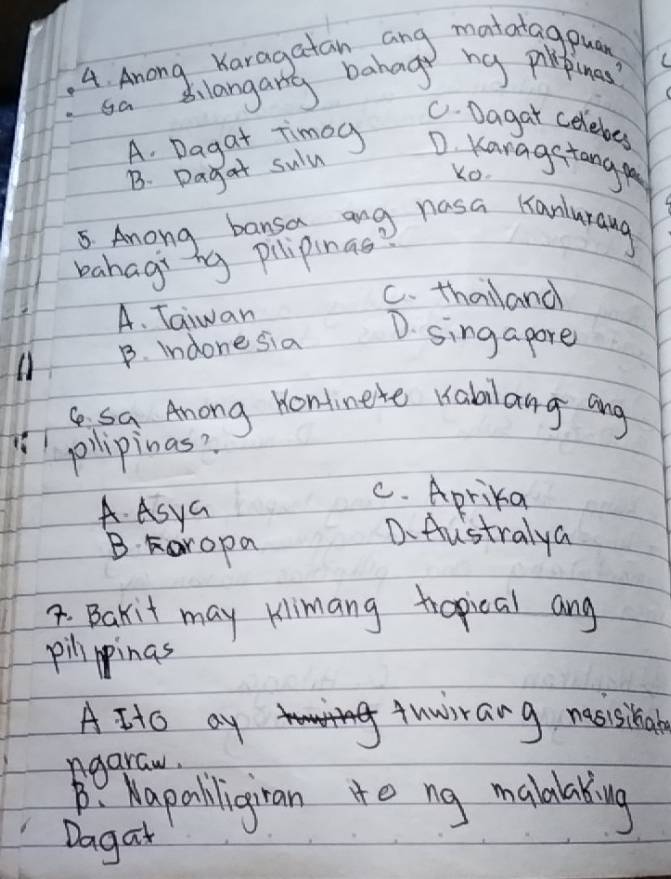 4. Anong Karagatan ang matatagpuan
sa silangang bahagi ng pilipinas?
A. Dagat Timog C. Dagat celebes
B. Dagat sulu D. Karagatang pa
ko.
5. Anong bansa ang nasa Kanlurang
bahagi ng pilipinas?
A. Taiwan C. thailand
B. Indonesia D. singapore
6. sa Anong Kontinete Kabilang ang
pilipinas?
A. Asya C. Aprika
B. Earopa D. Australya
7. Bakit may klimang tropical ang
pilippinas
A Ito ay tuwirang nasisikata
ngaraw.
B. Napaliligiran ito ng malalaking
Dagat